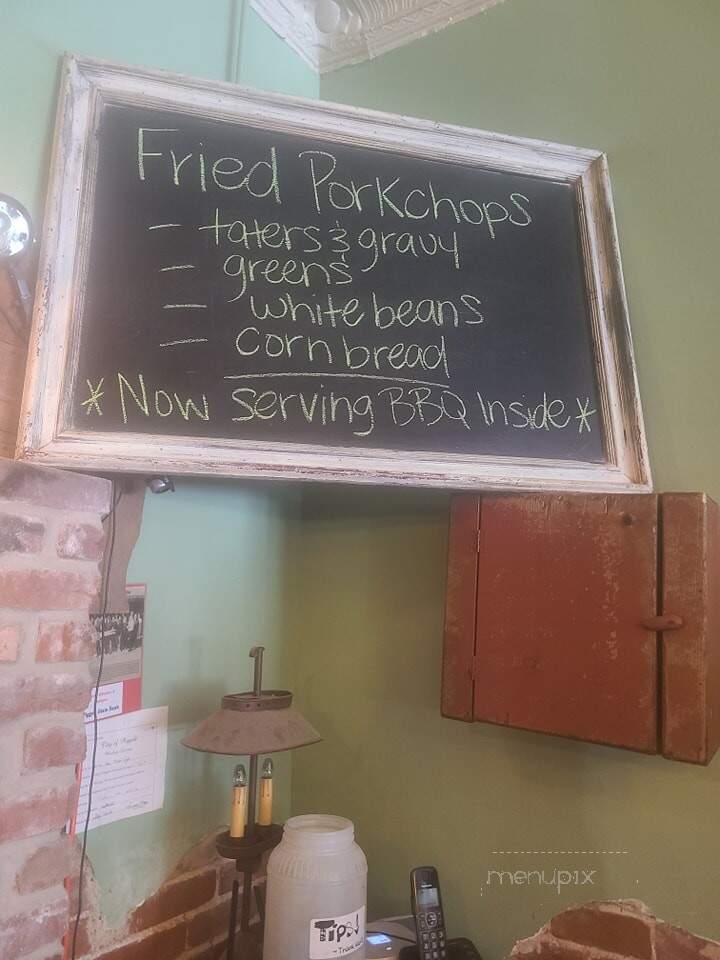 Fried Porkchops
- taters & gravy
- greens
- white beans
- corn bread
* Now Serving BBQ Inside *
City of
Tips
menupix